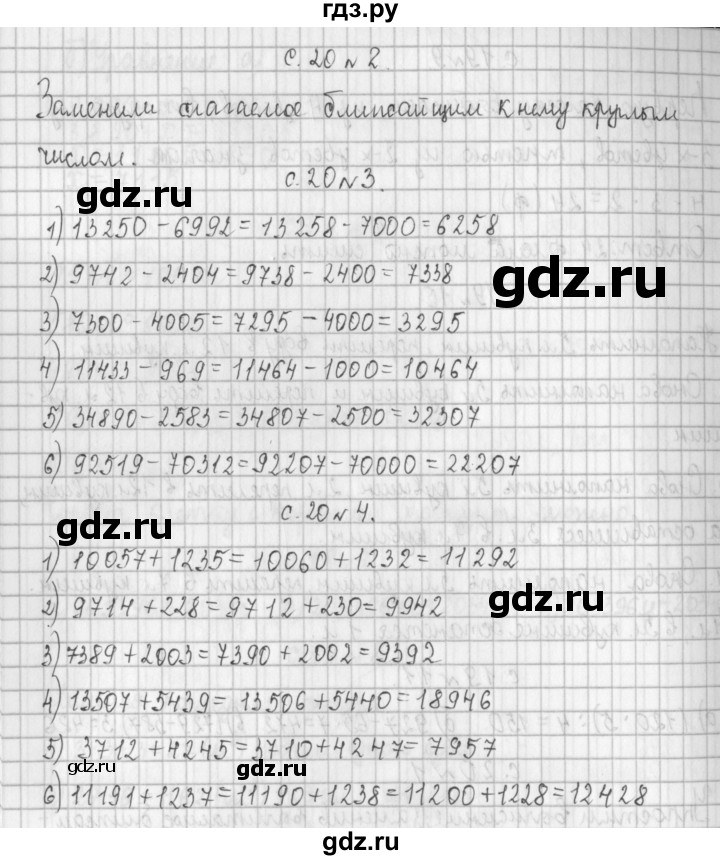 гдз.ру
с. 20 № 2.
Заменили слагаемое ближайшим к нему круглым
числом.
gdz.ru
с. 20 № 3.
1) 13250 - 6992 = 13258 - 7000 = 6258
2) 9742 - 2404 = 9738 - 2400 = 7338
gdz.ru
3) 7300 - 4005 = 7295 - 4000 = 3295
4) 11433 - 969 = 11464 - 1000 = 10464
5) 34890 - 2583 = 34807 - 2500 = 32307
6) 92519 - 70312 = 92207 - 70000 = 22207
с. 20 № 4.
gdz.ru
1) 10057 + 1235 = 10060 + 1232 = 11292
2) 9714 + 228 = 9712 + 230 = 9942
gdz.ru
3) 7389 + 2003 = 7390 + 2002 = 9392
4) 13507 + 5439 = 13506 + 5440 = 18946
5) 3712 + 4245 = 3710 + 4247 = 7957
gdz.ru
gdz.ru
6) 11191 + 1237 = 11190 + 1238 = 11200 + 1228 = 12428
gdz.ru